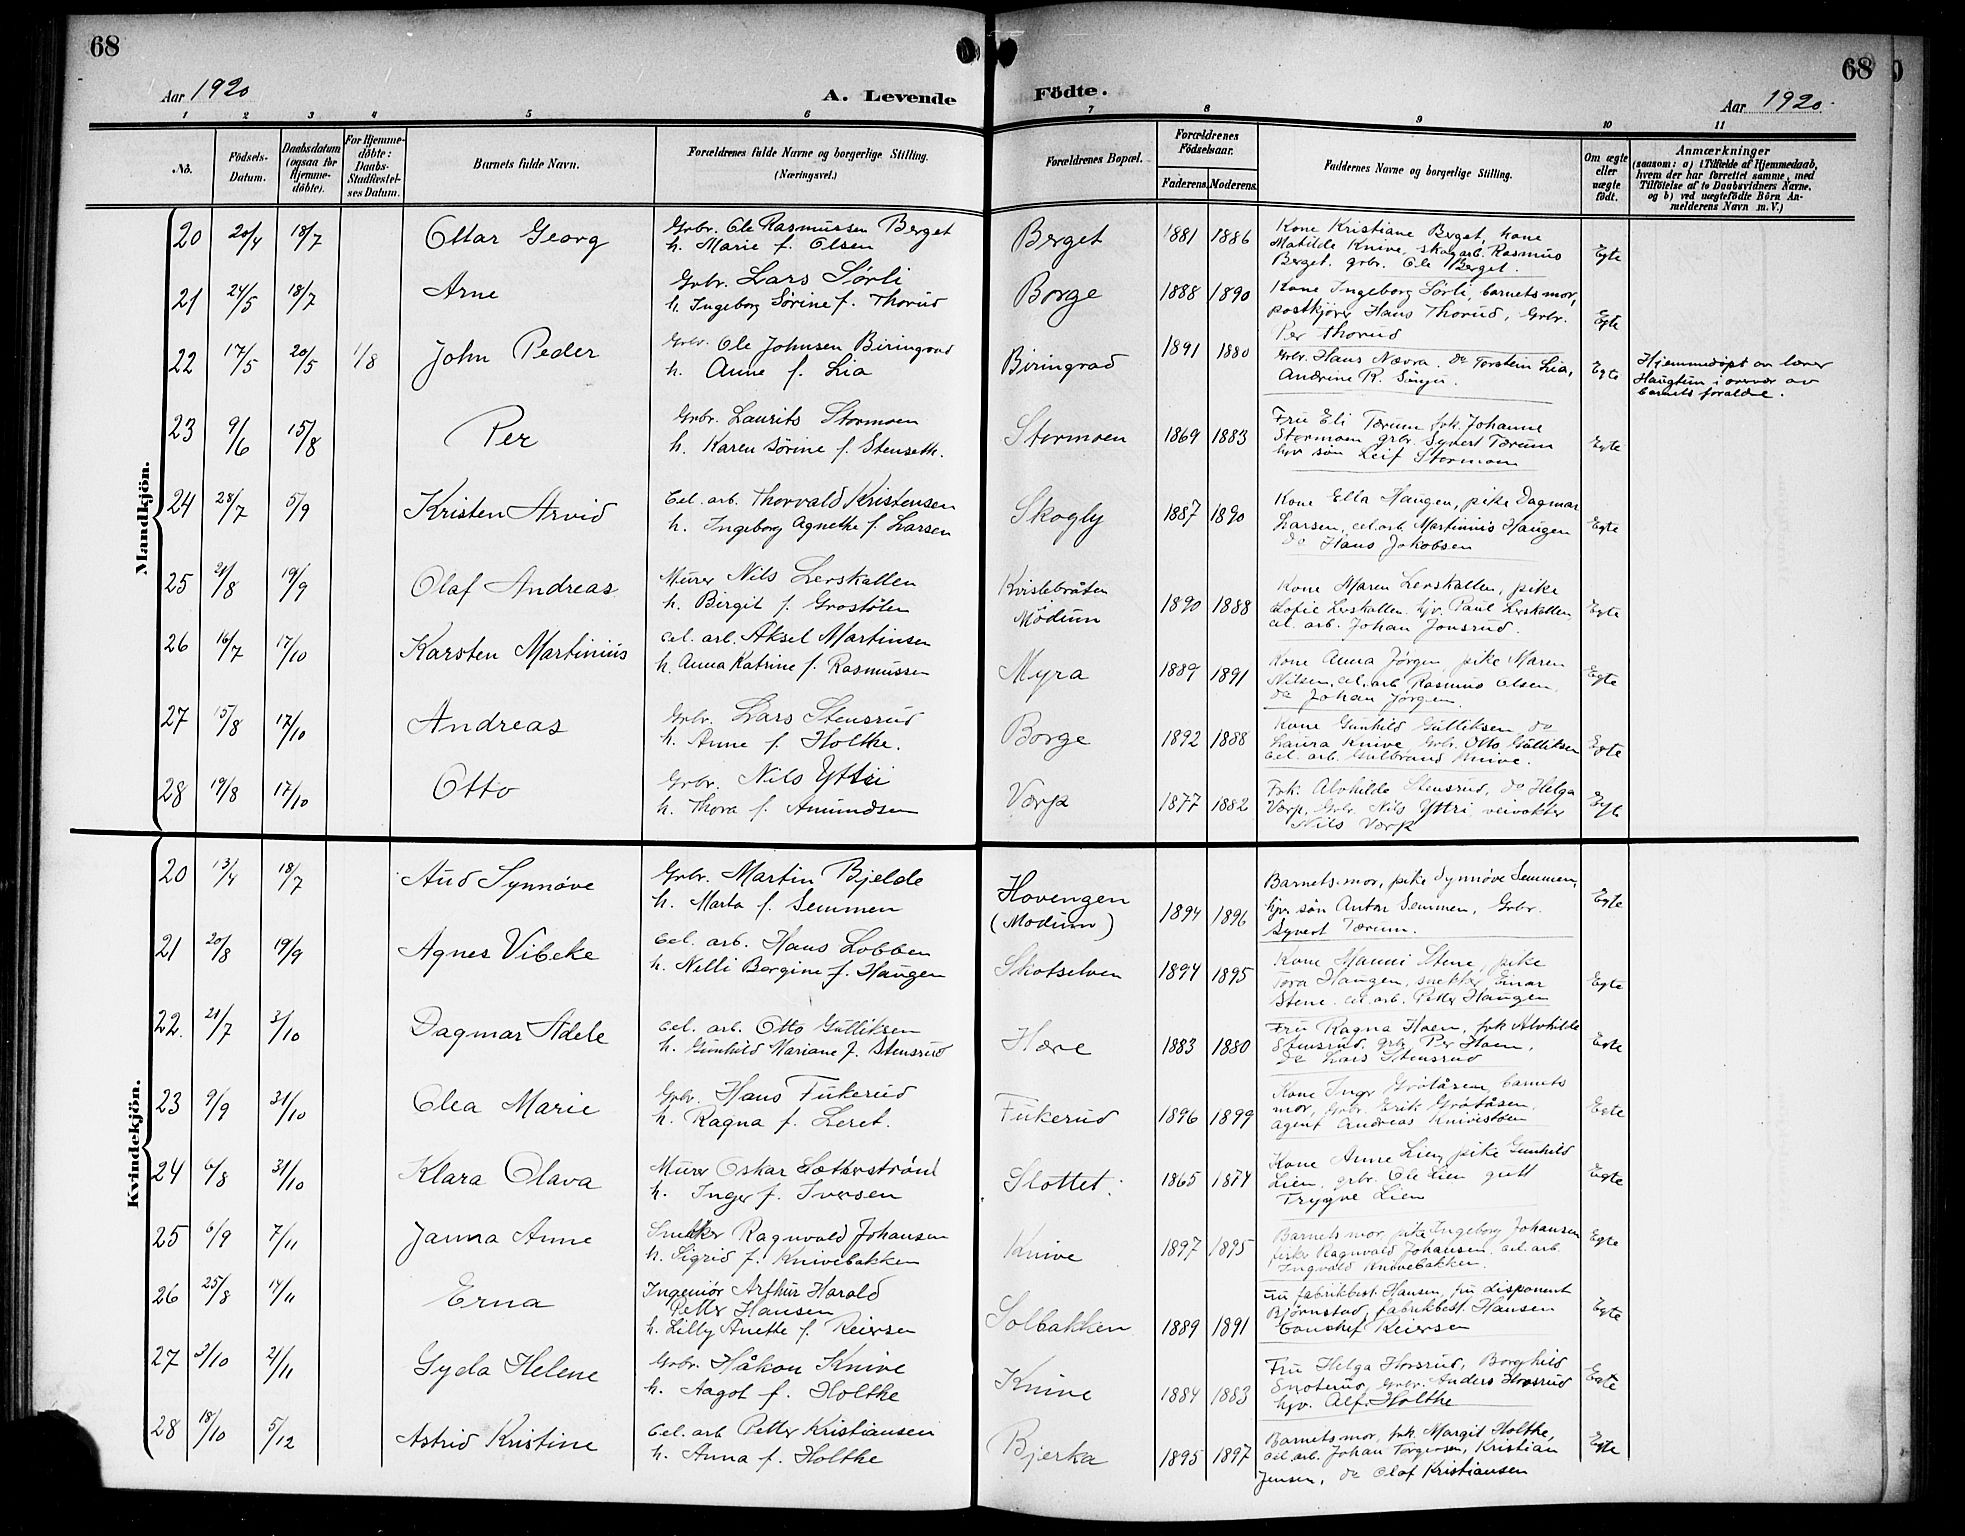 68
68
Aar 1920
A. Levende
Födte.
Aar 1920.
1 2 3 4 5 6 7 8 9 10 11
No.
Födsels-
Datum.
Daabsdatum
(ogsaa för
Hjemme-
döbte).
For Hjemme-
döbte:
Daabs-
Stadfæstel-
ses Datum.
Barnets fulde Navn.
Forældrenes fulde Navne og borgerlige Stilling.
(Næringsvei.)
Forældrenes Bopæl.
Forældrenes
Födselsaar.
Faderens. Moderens.
Faddernes Navne og borgerlige Stilling.
Om ægte
eller
uægte
födt.
Anmærkninger
(saasom: a) i Tilfælde af Hjemmedaab,
hvem der har forrettet samme, med
Tilföielse af to Daabsvidners Navne.
og b) ved uægtefödte Börn An-
melderens Navn m. V.)
Mandkjön.
20 20/4 18/7 Ottar Georg
Grbr. Ole Rasmussen Berget
h. Marie f. Olsen
Berget 1881 1886
Kone Kristiane Berget, kone
Matilde Knive, skogarb. Rasmus
Berget. grbr. Ole Berget.
Egte
21 24/5 18/7 Arne
Grbr. Lars Sørli
h. Ingeborg Sørine f. Thorud
Borge 1888 1890
Kone Ingeborg Sørli, barnets mor,
postkjører Hans Thorud, Grbr.
Per Thorud
Egte
22 17/5 20/5 1/8 John Peder
Grbr. Ole Johnsen Biringrad
h. Anne f. Lia
Biringrad 1891 1880
Grbr. Hans Nævra. do Torstein Lia,
Andrine R.
Egte
Hjemmedøpt av lærer
Haugtun i overvær av
barnets forældre.
23 9/6 15/8 Per
Grbr. Laurits Stormoen
h. Karen Sørine f. Stenseth.
Stormoen 1869 1883
Fru Eli Tærum frk. Johanne
Stormoen grbr. Syvert Tærum
hjv søn Leif Stormoen
Egte
24 28/7 5/9 Kristen Arvid
Cel. arb. Thorvald Kristensen
h. Ingeborg Agnethe f. Larsen
Skogly 1887 1890
Kone Ella Haugen, pike Dagmar
Larsen, cel. arb. Martinius Haugen
do Hans Jakobsen
Egte
25 21/8 19/9 Olaf Andreas
Murer Nils Lerskallen
h. Birgit f. Grostølen
Kvislebråten
Modum 1890 1888
Kone Maren Lerskallen, pike
Sofie Lerskallen. hjv. Paul Lerskallen,
cel. arb. Johan Jonsrud.
Egte
26 16/7 17/10 Karsten Martinius
Cel. arb. Aksel Martinsen
h. Anna Katrine f. Rasmussen
Myra 1889 1891
Kone Anna Jørgen, pike Maren
Nilsen, cel. arb Rasmus Olsen,
do Johan Jørgen.
Egte
27 15/8 17/10 Andreas
Grbr. Lars Stensrud
h. Anne f. Holthe.
Borge 1892 1888
Kone Gunhild Gulliksen do
Laura Knive, Grbr. Otto Gulliksen
Cel. arb. Gulbrand Knive.
Egte
28 19/8 17/10 Otto
Grbr. Nils Yttri
h. Thora f. Amundsen
Værp 1877 1882
Frk. Alvhilde Stensrud, do Helga
Værp, Grbr Nils Yttri, veivokter
Nils Værp
Egte
Kvindekjön.
20 13/4 18/7 Aud Synnøve
Grbr. Martin Bjelde
h. Marta f. Semmen
Hovengen
(Modum) 1894 1896
Barnets mor, pike Synnøve Semmen,
hjv søn Anton Semmen, Grbr.
Syvert Tærum.
Egte
21 20/8 19/9 Agnes Vibeke
Cel. arb. Hans Lobben
h. Nelli Bergine f. Haugen
Skotselven 1894 1895
Kone Manni Stene, pike
Tora Haugen, snekker Einar
Stene. cel. arb. Petter Haugen
Egte
22. 21/7 3/10 Dagmar Adele
Cel. arb. Otto Gulliksen
h. Gunhild Mariane f. Stensrud
Hære 1883 1880
Fru Ragna Hoen, frk Alvhilde
Stensrud. grbr Per Hoen,
do Lars Stensrud
Egte
23 9/9 31/10 Olea Marie
Grbr. Hans Fukerud
h. Ragna f. Leret.
Fukerud 1896 1899
Kone Inger Grøtåsen, barnets
mor, Grbr. Erik Grøtåsen.
agent Andreas Knivistøen
Egte
24 6/8 31/10 Klara Olava
Murer Oskar Sætterstrønd
h. Inger f. Iversen
Slottet. 1865 1874
Kone Anne Lien, pike Gunhild
Lien, grbr. Ole Lien gutt
Trygve Lien
Egte
25 6/9 7/11 Janna Anne
Snekker Ragnvald Johansen
h. Sigrid f. Knivebakken
Knive 1897 1895
Barnets mor, pike Ingeborg Johansen
Ragnvald Johansen. cel. arb.
Ingvald Knivebakken.
Egte
26 25/8 14/11 Erna
Ingeniør Arthur Harald
Petter Hansen
h. Lilly Anette f. Reiersen
Solbakken 1889 1891
Fru fabrikbest. Hansen, fru disponent
Bjørnstad, fabrikbest. Hansen
Reiersen
Egte
27 3/10 21/11 Gyda Helene
Grbr. Håkon Knive
h. Aagot f. Holthe
Knive 1884 1883
Fru Helga Horsrud, Borghild
Snoterud, Grbr. Anders Horsrud
hjv. Alf Holthe
Egte
28 18/10 5/12 Astrid Kristine
Cel. arb Petter Kristiansen
h. Anna f. Holthe
Bjerka 1895 1897
Barnets mor, frk. Margit Holthe,
cel. arb. Johan Torgersen, Kristian
Jensen, do Olaf Kristiansen
Egte